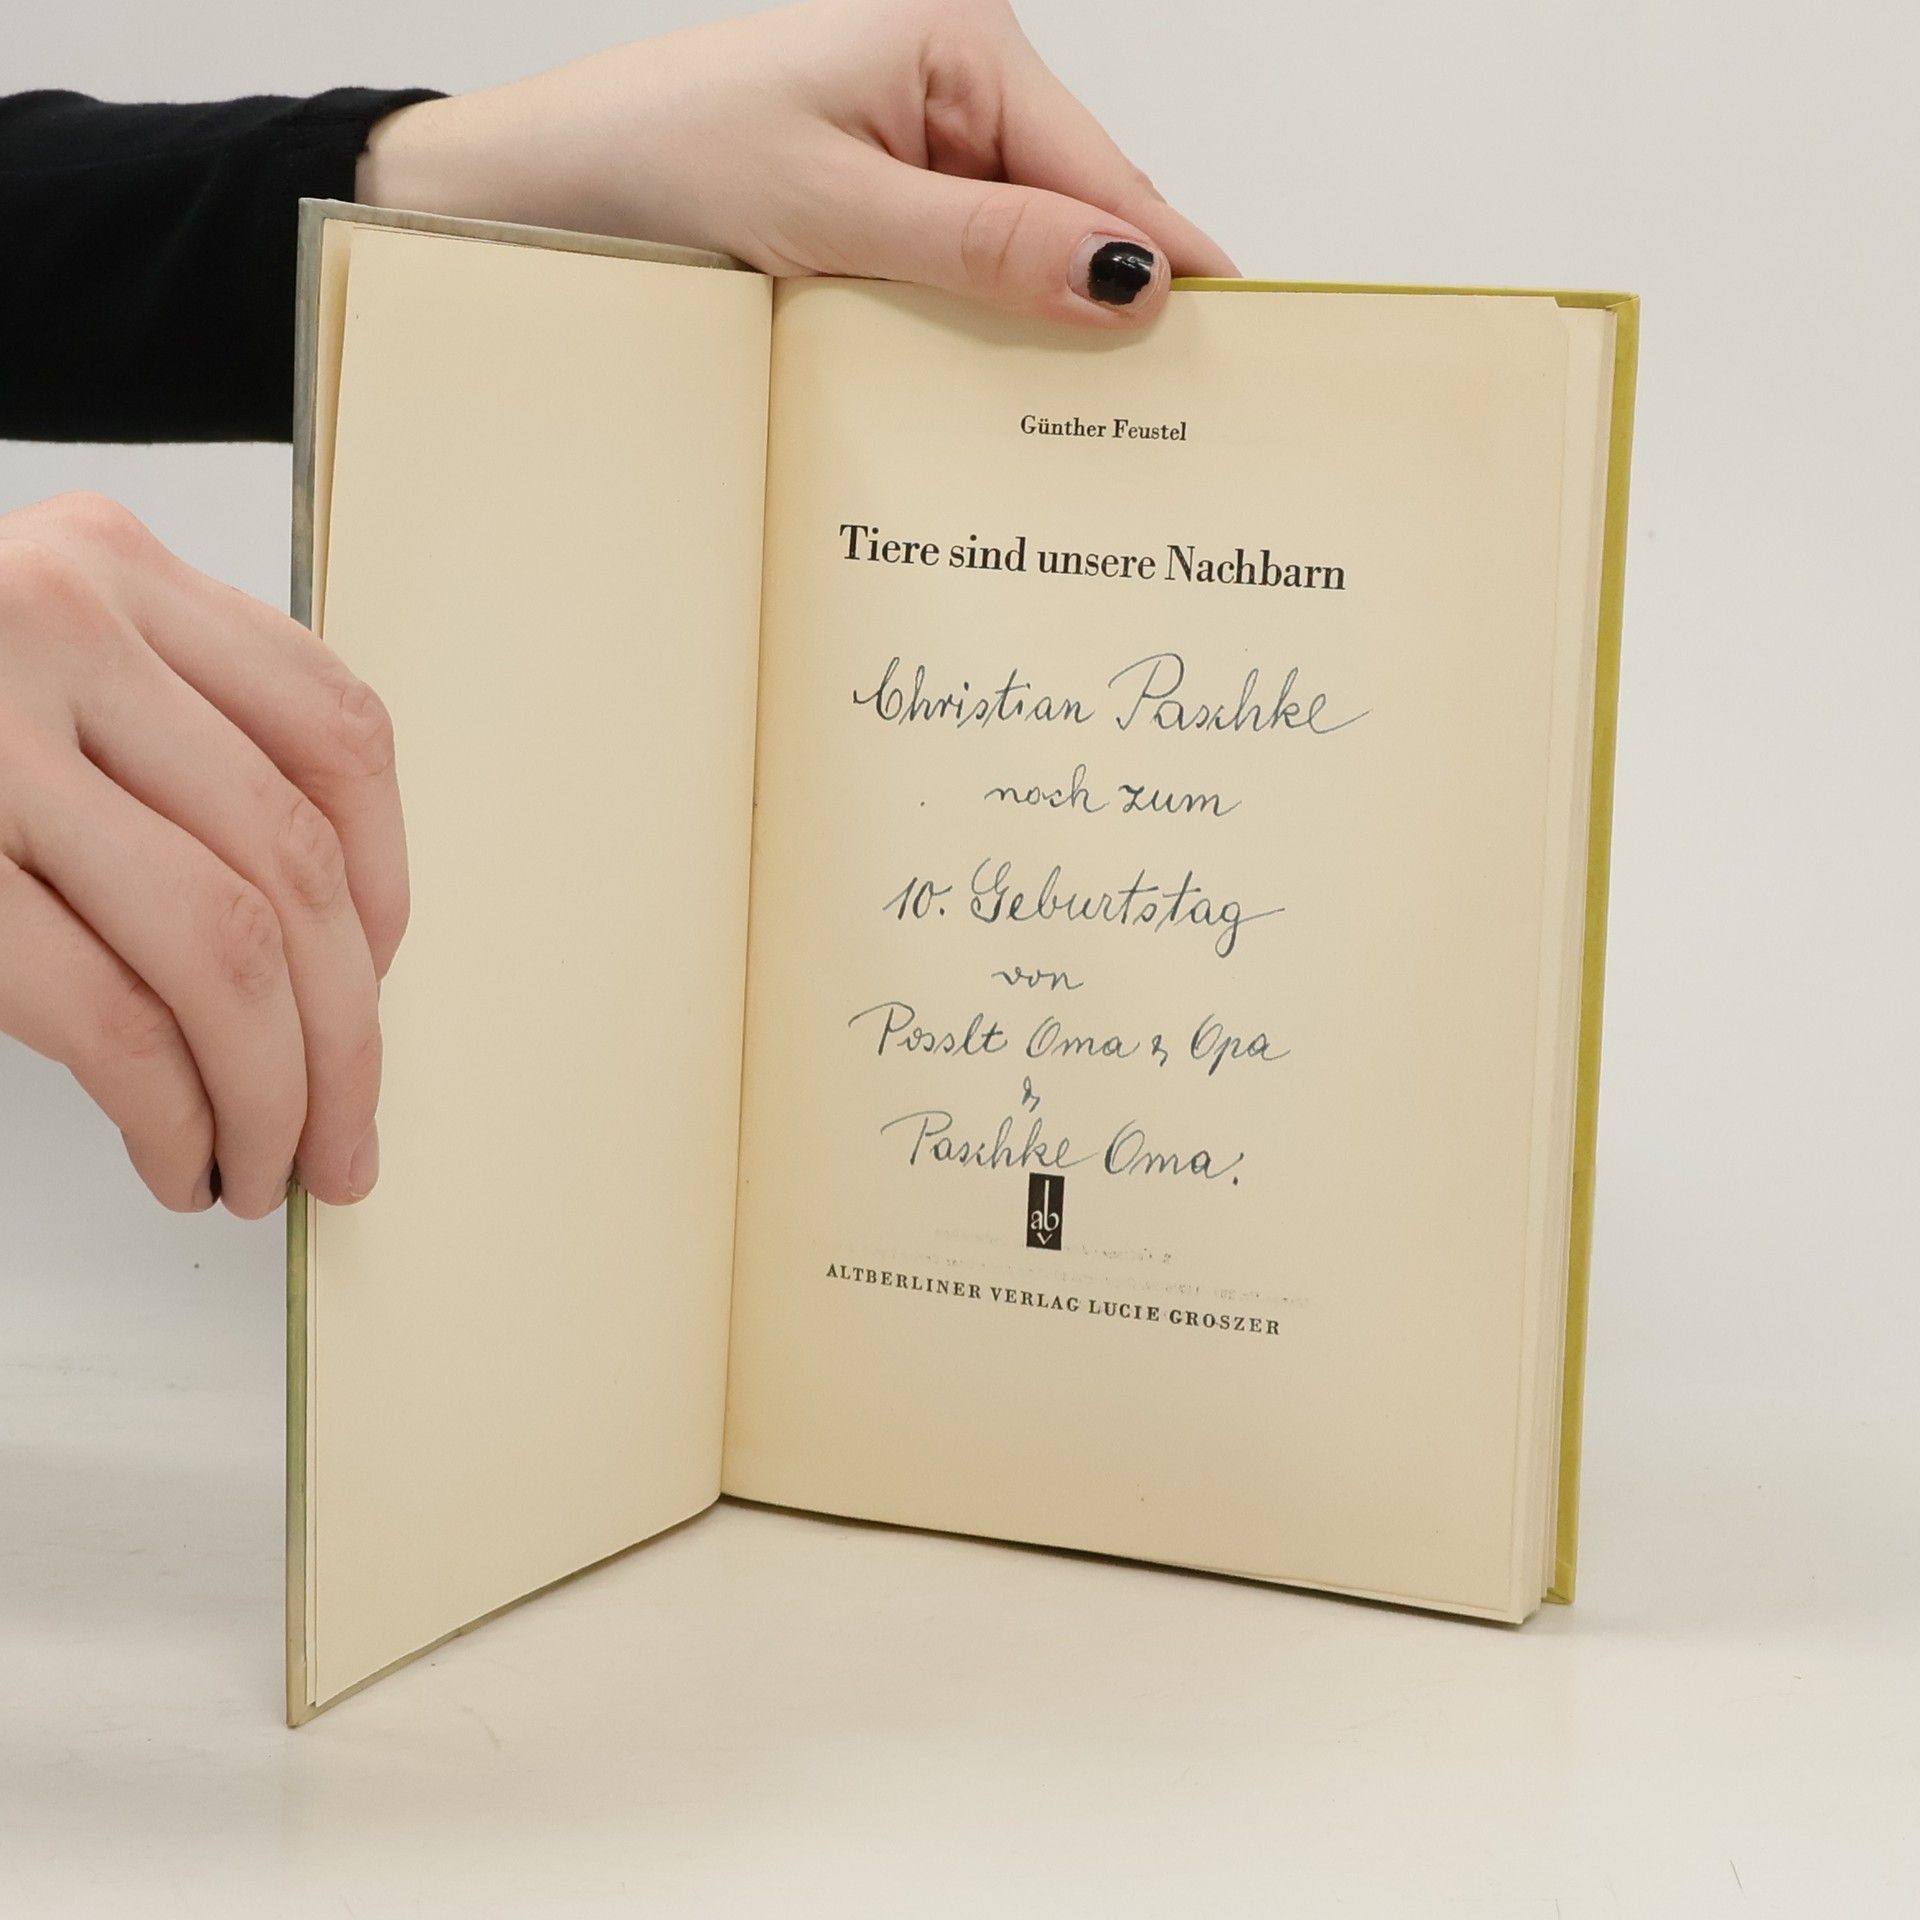 Günther Feustel
Tiere sind unsere Nachbarn
Christian Paschke
noch zum
10. Geburtstag
von
Posslt Oma & Opa
&
Paschke Oma.
abv
ALTBERLINER VERLAG LUCIE GROSZER